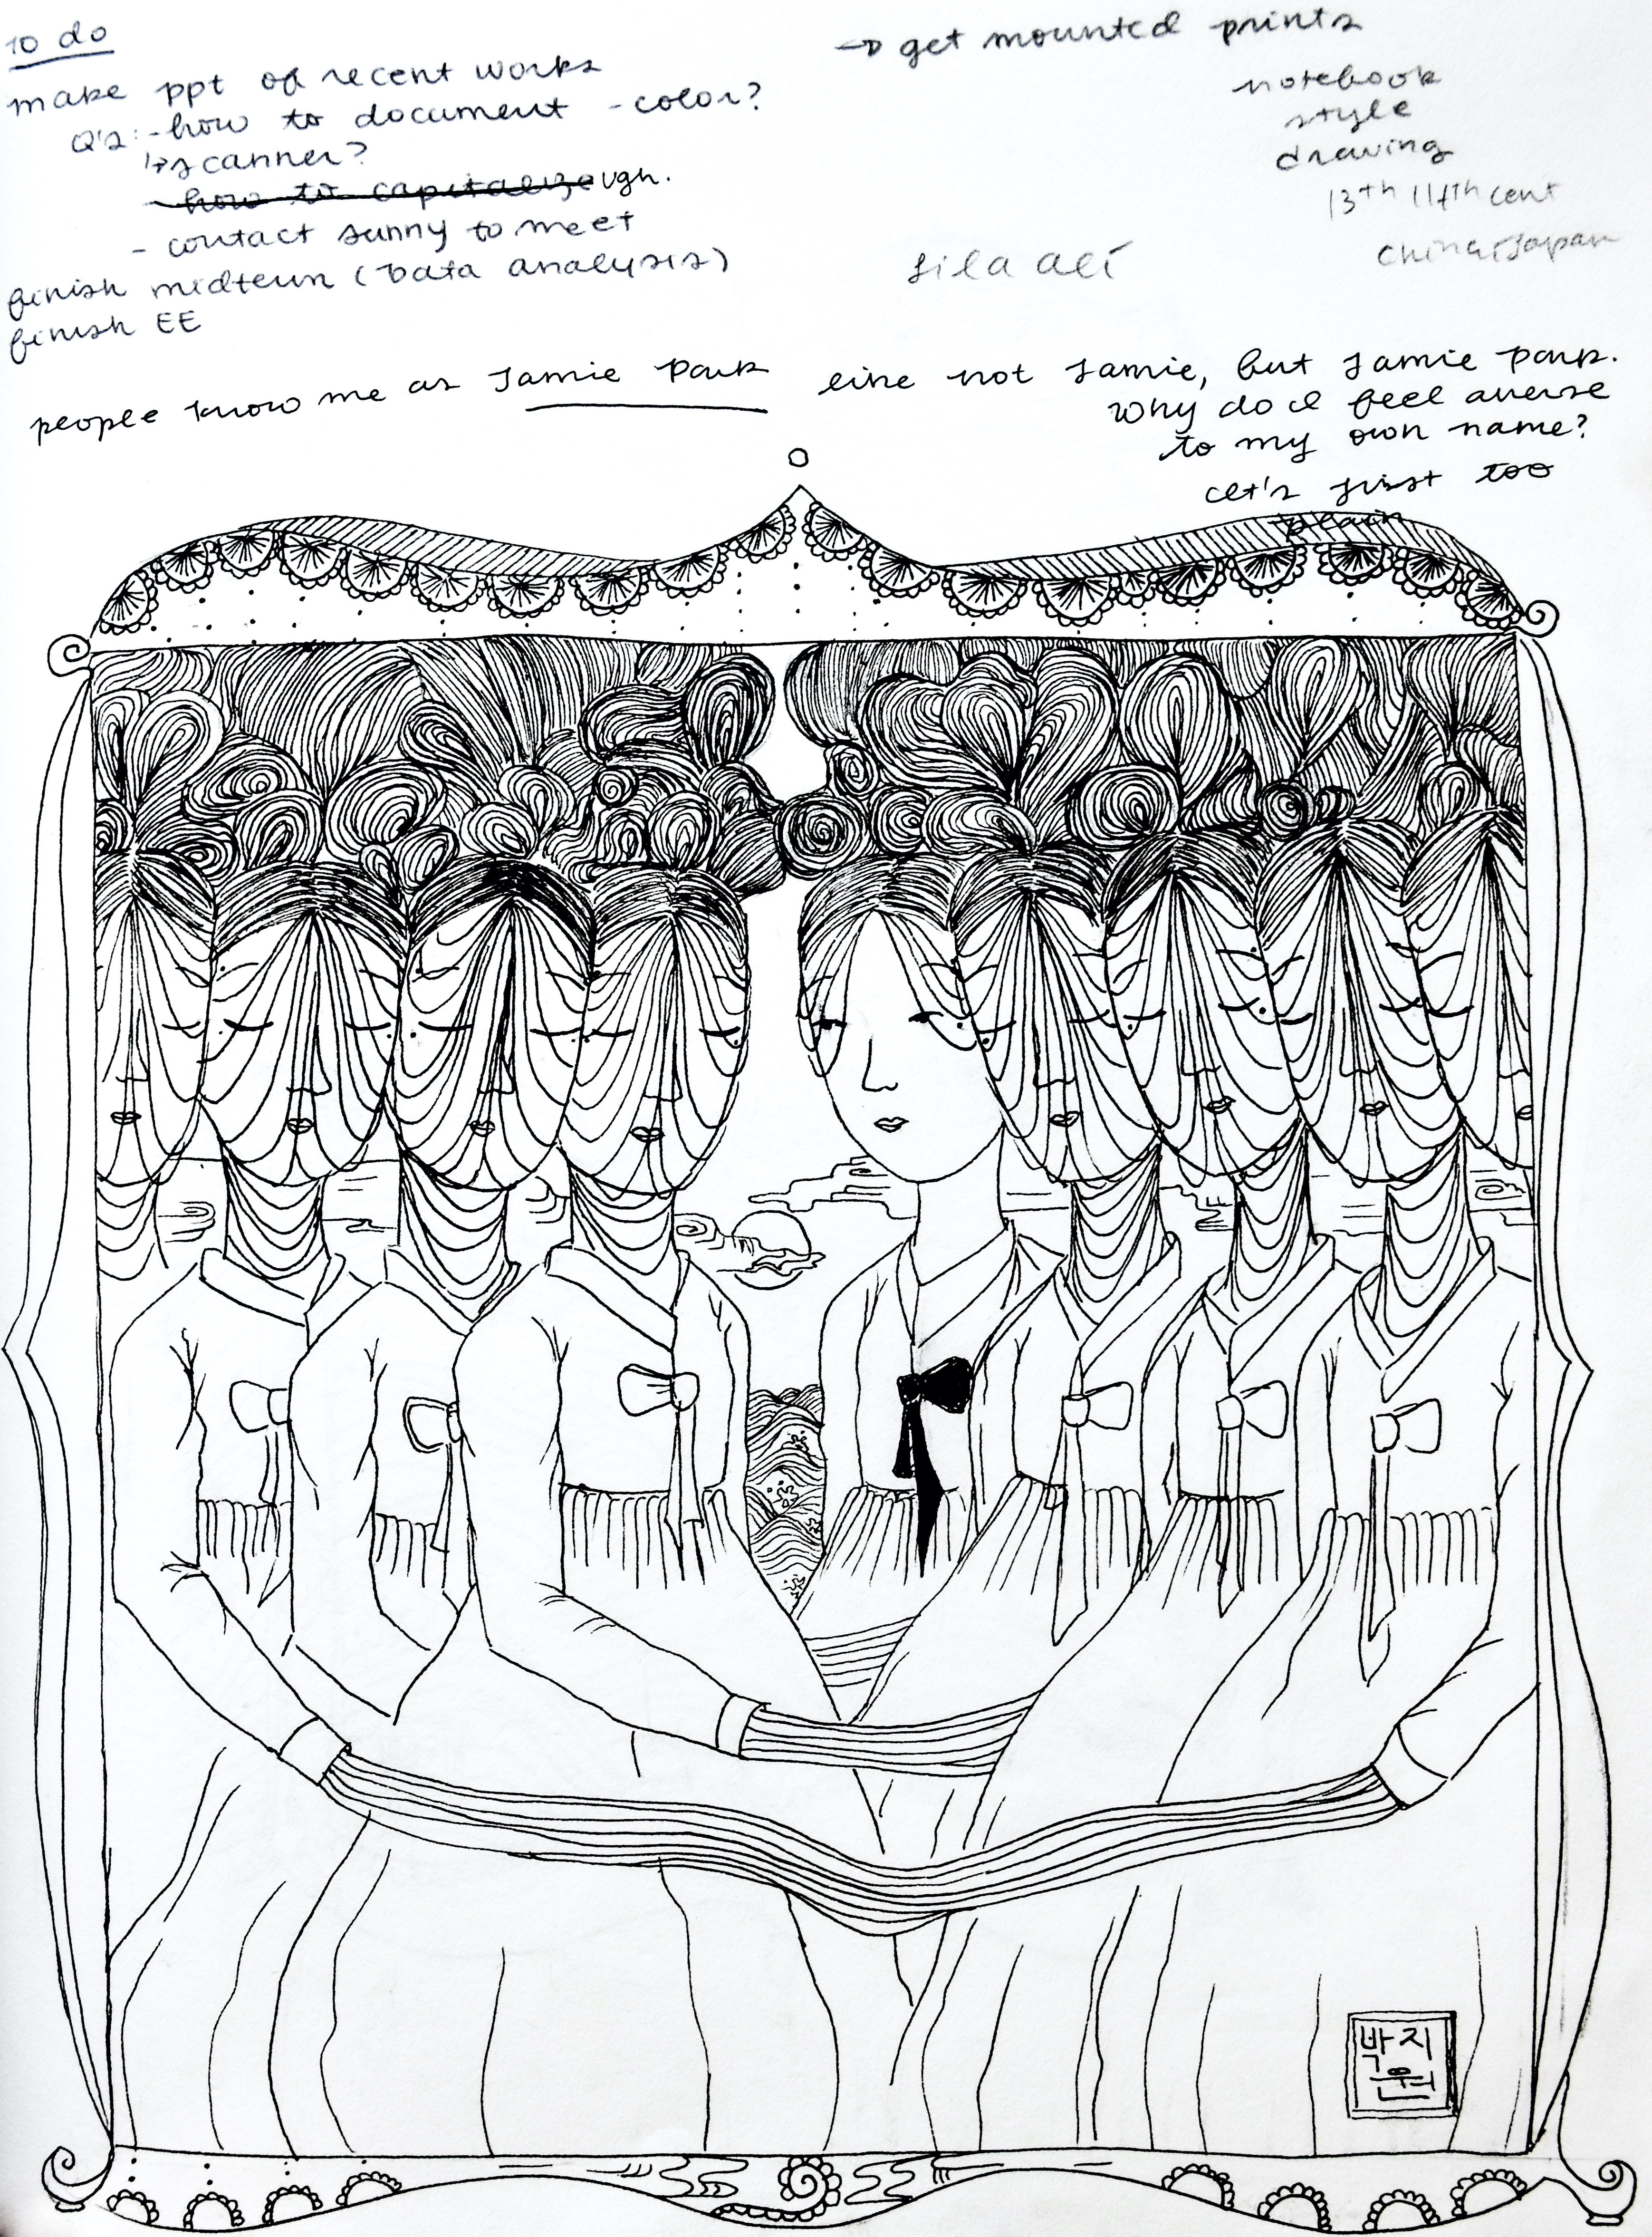 to do
make ppt of recent works
Q's: - how to document - color?
↳ scanner?
- how to capitalize ugh.
- contact sunny to meet
finish midterm (Data analysis)
finish EE
→ get mounted prints
notebook
style
drawing
13th 14th cent
china, Japan
people know me as Jamie Park like not Jamie, but Jamie Park.
Why do I feel averse
to my own name?
Let's just too
plain
박지
원